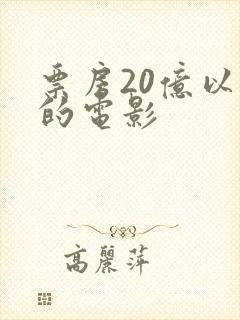 票房20億以
的電影
高麗萍